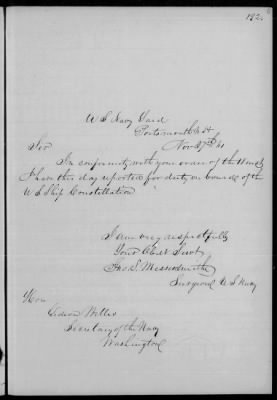 192.
U S Navy Yard
Portsmouth N H
Nov 27th 61
Sir
In conformity with your order of the
I have this day reported for duty on board of the
U S Ship Constellation
I am very respectfully
Your Obdt Servt
Surgeon U S Navy
Hon
Gideon Welles
Secretary of the Navy
Washington